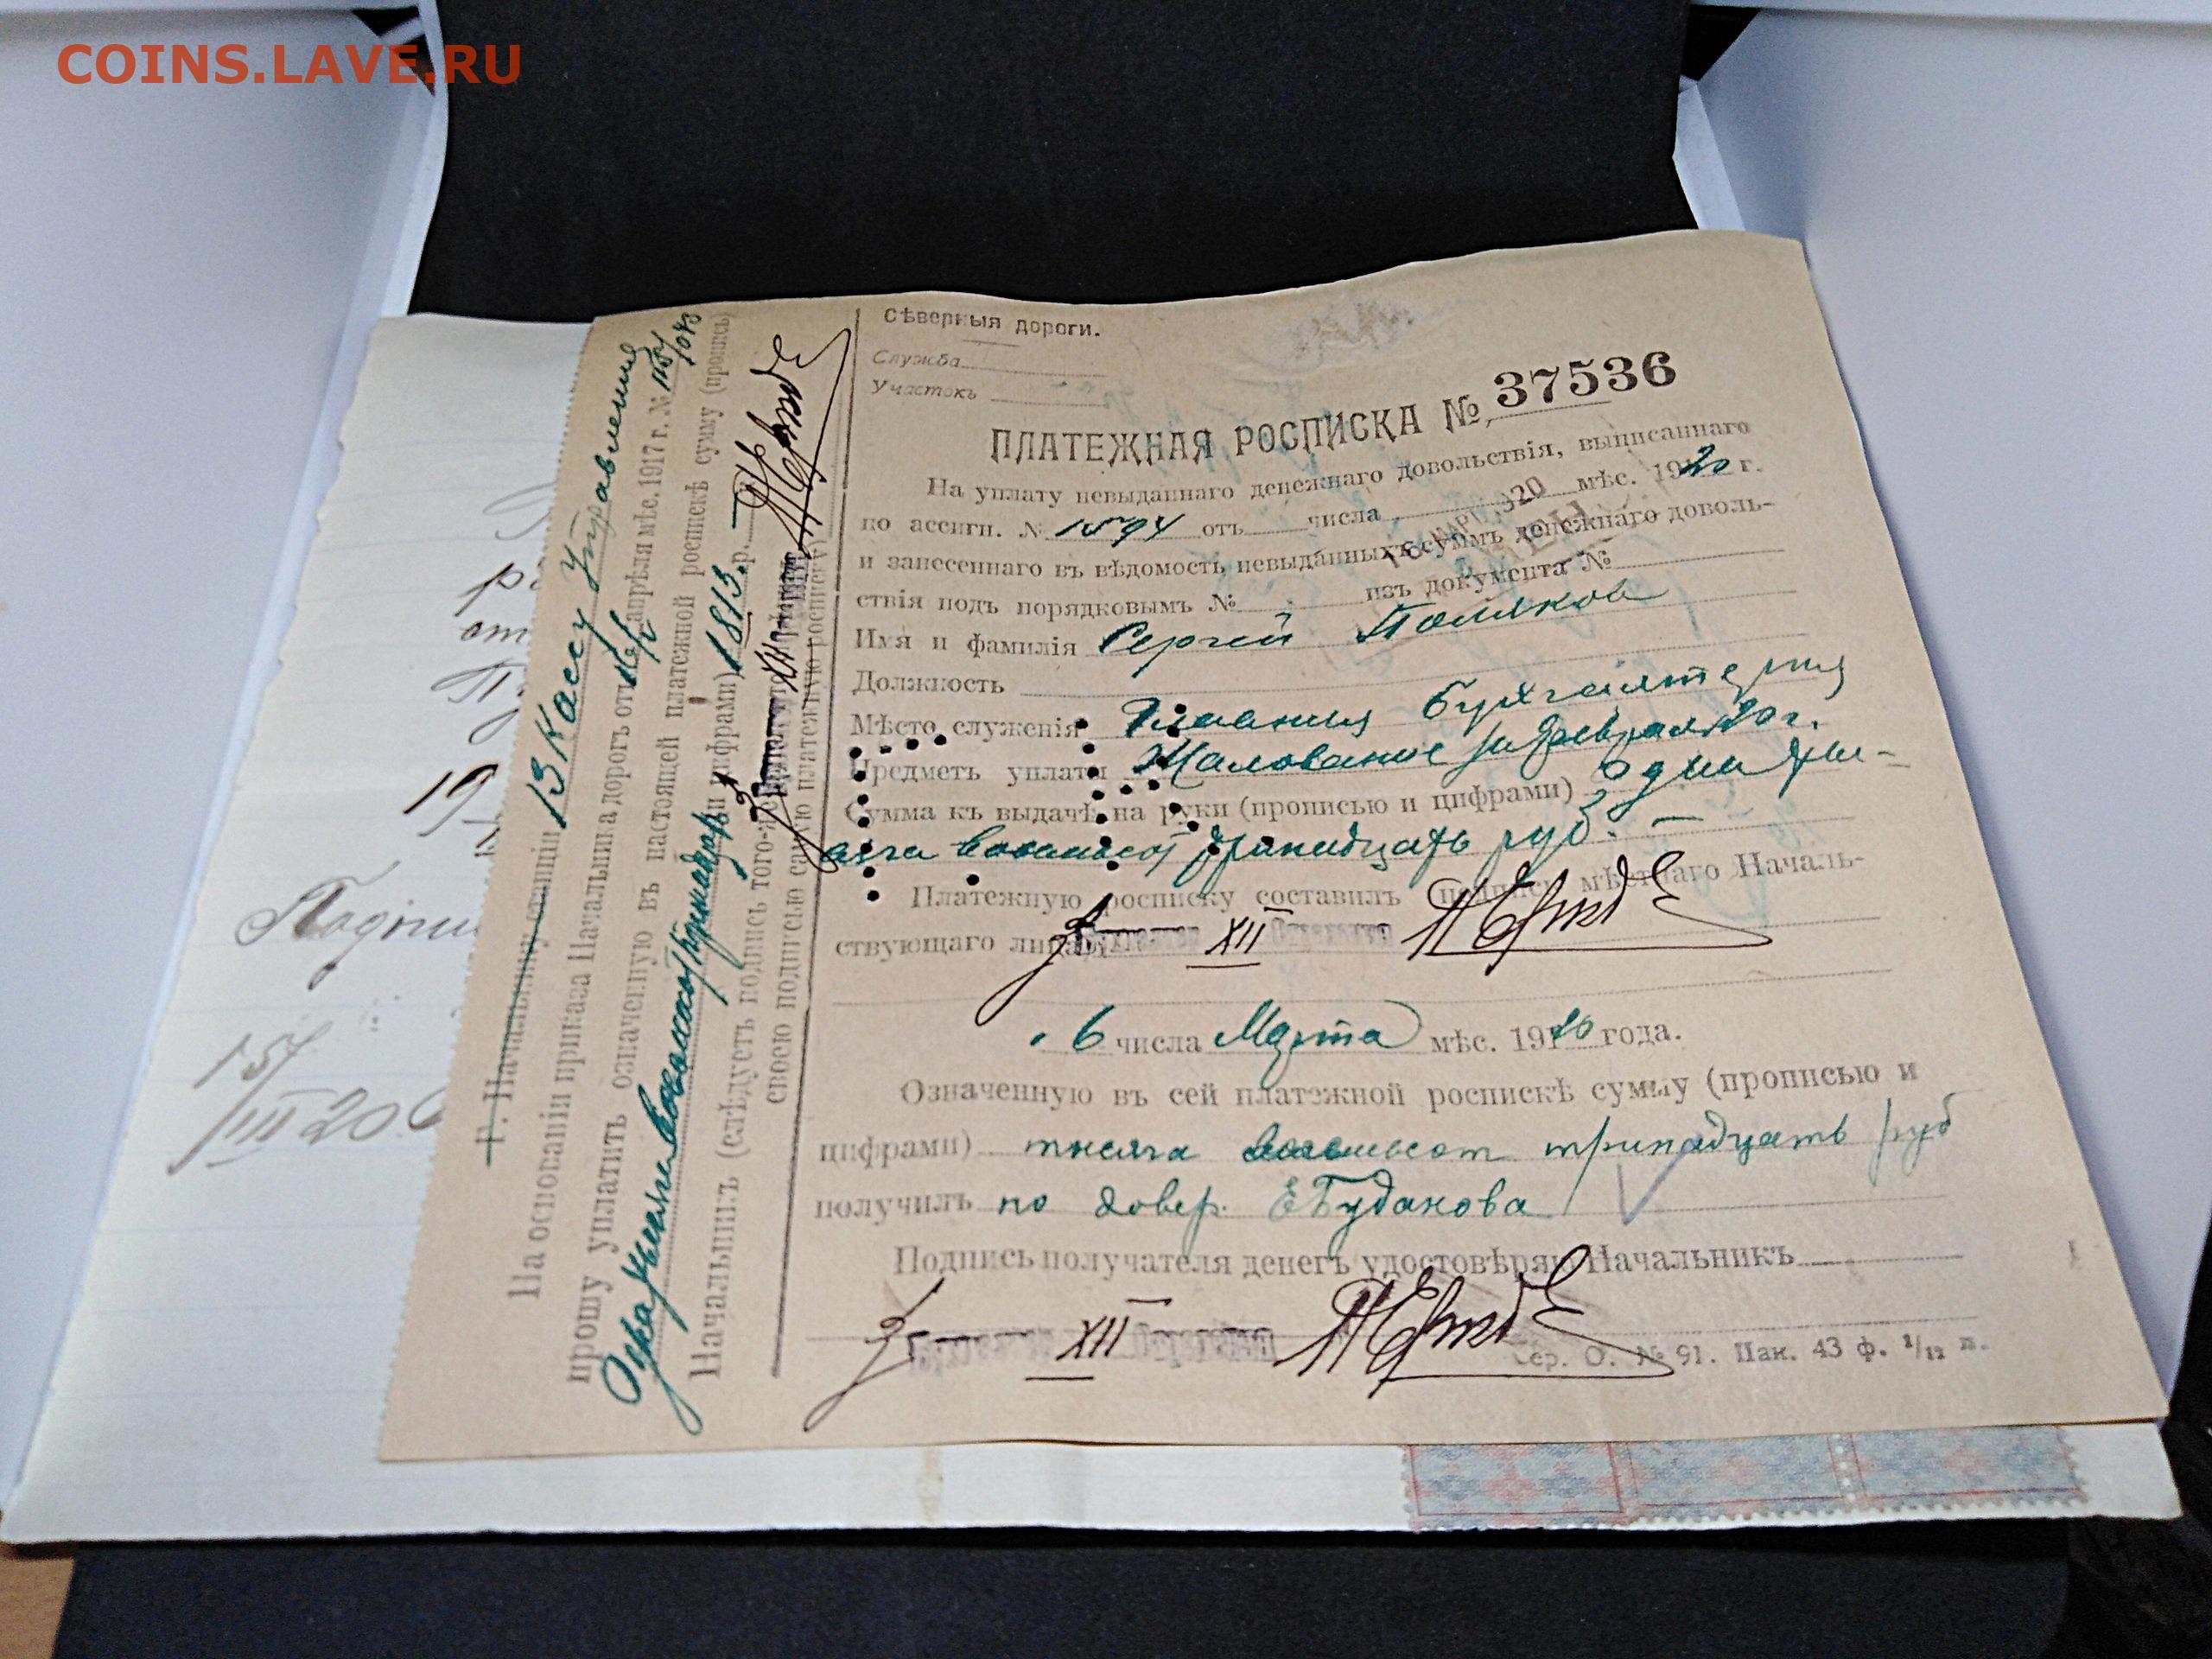 COINS.LAVE.RU
Сѣверныя дороги.
Служба
Участокъ
ПЛАТЕЖНАЯ РОСПИСКА № 37536
На уплату невыданнаго денежнаго довольствія, выписаннаго
по ассигн. № 1594 отъ числа мѣс. 1920 г.
и занесеннаго въ вѣдомость невыданныхъ суммъ денежнаго доволь-
ствія подъ порядковымъ № изъ документа №
Имя и фамилія Сергей Поляков
Должность
Мѣсто служенія Главная Бухгалтерия
Предметъ уплаты Жалование за февраль 20 г.
Сумма къ выдачѣ на руки (прописью и цифрами) одна ты-
сяча восемьсот тринадцать руб. —
Платежную росписку составилъ подпись мѣстнаго Началь-
ствующаго лица XII
6 числа Марта мѣс. 1920 года.
Означенную въ сей платежной роспискѣ сумму (прописью и
цифрами) тысяча восемьсот тринадцать руб
получилъ по довер. Е Будакова
Подпись получателя денегъ удостовѣряю Начальникъ
XII
Сер. О. № 91. Пак. 43 ф. 1/12 л.
Г. Начальнику станціи В Кассу Управления
На основаніи приказа Начальника дорогъ отъ апрѣля мѣс. 1917 г. №
прошу уплатить означенную въ настоящей платежной роспискѣ сумму (прописью
и цифрами) 1813 р. —
Одна тысяча восемьсот тринадцать
Начальникъ (слѣдуетъ подпись того-же
своею подписью самую платежную росписку)
XII
19
Подпи
15/III 20